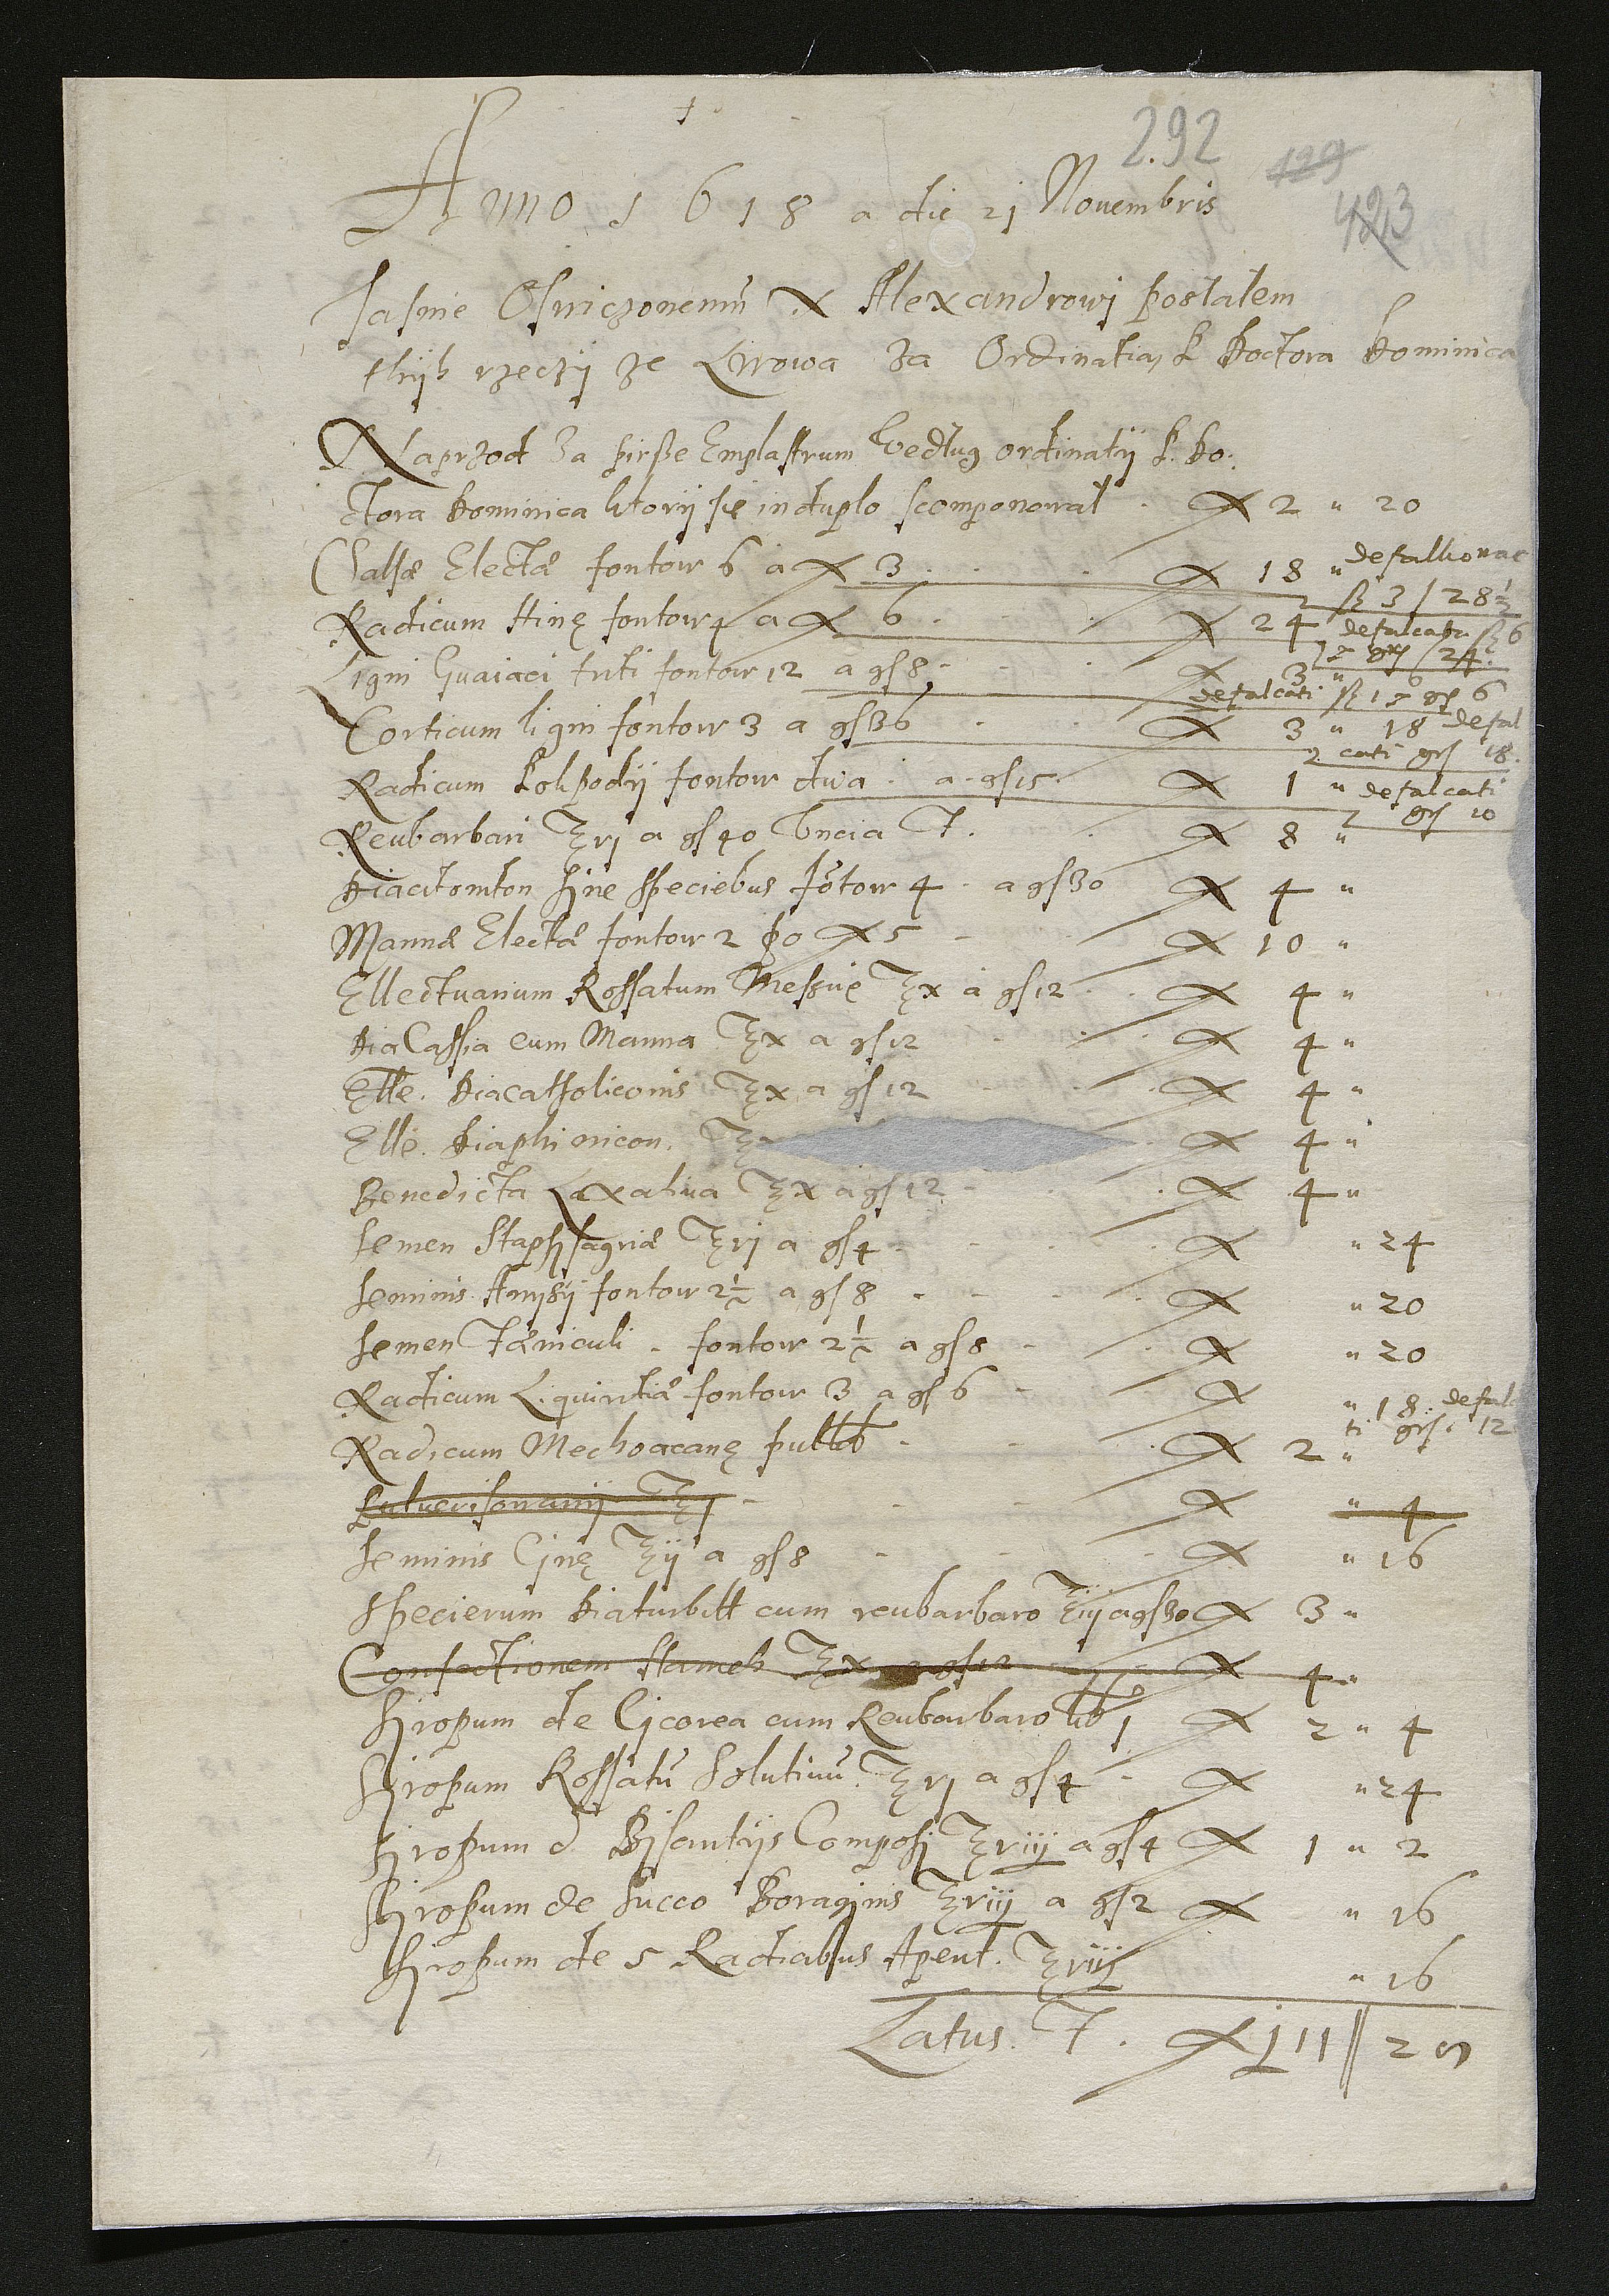 292
129
423
Anno 1618 a die 21 Novembris
Jasnie Oswieczonemu X Alexandrowi posłałem
rzeczy ze Lwowa za Ordinatią P Doctora Dominica
Naprzod za pirsze Emplastrum wedlug ordinatij P. Do.
ctora Dominica ktory sie in duplo scomponował fl 2 " 20
Salsæ Electæ fontow 6 a fl 3 . . fl 18 "
fl 3 / 28 ½
Radicum Hinę fontow 4 a fl 6 . fl 24 defalcatu fl 6
Ligni Guaiaci tuti fontow 12 a gs 8 . fl 3 " 6
defalcati fl 1 gs 6
Corticum ligni fontow 3 a gs 36 . . fl 3 " 18 defal
cati grs 18.
Radicum Polipodij fontow dwa . a gs 15 . fl 1 " defalcati
grs 10
Reubarbari ℥ vj a gs 40 Uncia 7. . fl 8 "
Diacitomton sine speciebus fótow 4 . a gs 30 fl 4 "
Mannæ Electæ fontow 2 po fl 5 . fl 10 "
Ellectuarium Rossatum Messuę ℥ x a gs 12 . fl 4 "
Dia Cassia cum Manna ℥ x a gs 12 . fl 4 "
Elle. Diacatholiconis ℥ x a gs 12 . fl 4 "
Elle. Diaphinicon. ℥ . fl 4 "
Benedicta Laxativa ℥ x a gs 12 . fl 4 "
Semen Staphisagriæ ℥ vj a gs 4 . fl " 24
Seminis Anysij fontow 2 ½ a gs 8 . fl " 20
Semen Fæniculi . fontow 2 ½ a gs 8 . fl " 20
Radicum Liquiritiæ fontow 3 a gs 6 . fl " 18 : defal
ti grs. 12
Radicum Mechoacanę pul lb . fl 2 "
℥ j . fl " 4
Seminis Cinę ℥ ij a gs 8 . fl " 16
Specierum Diaturbitt cum reubarbaro ℥ iij a gs 30 fl 3 "
Confectionem Hamech ℥ x a gs 12 . fl 4 "
Siropum de Cicorea cum Reubarbaro lb j fl 2 " 4
Siropum Rossatū Solutiuū. ℥ vj a gs 4 . fl " 24
Siropum d Bisantijs Composi ℥ viij a gs 4 fl 1 " 2
Siropum de Succo Boraginis ℥ viij a gs 2 fl " 16
Siropum de 5 Radicabus Aperit. ℥ viij " 16
Latus. 7 . fl 111 || 20